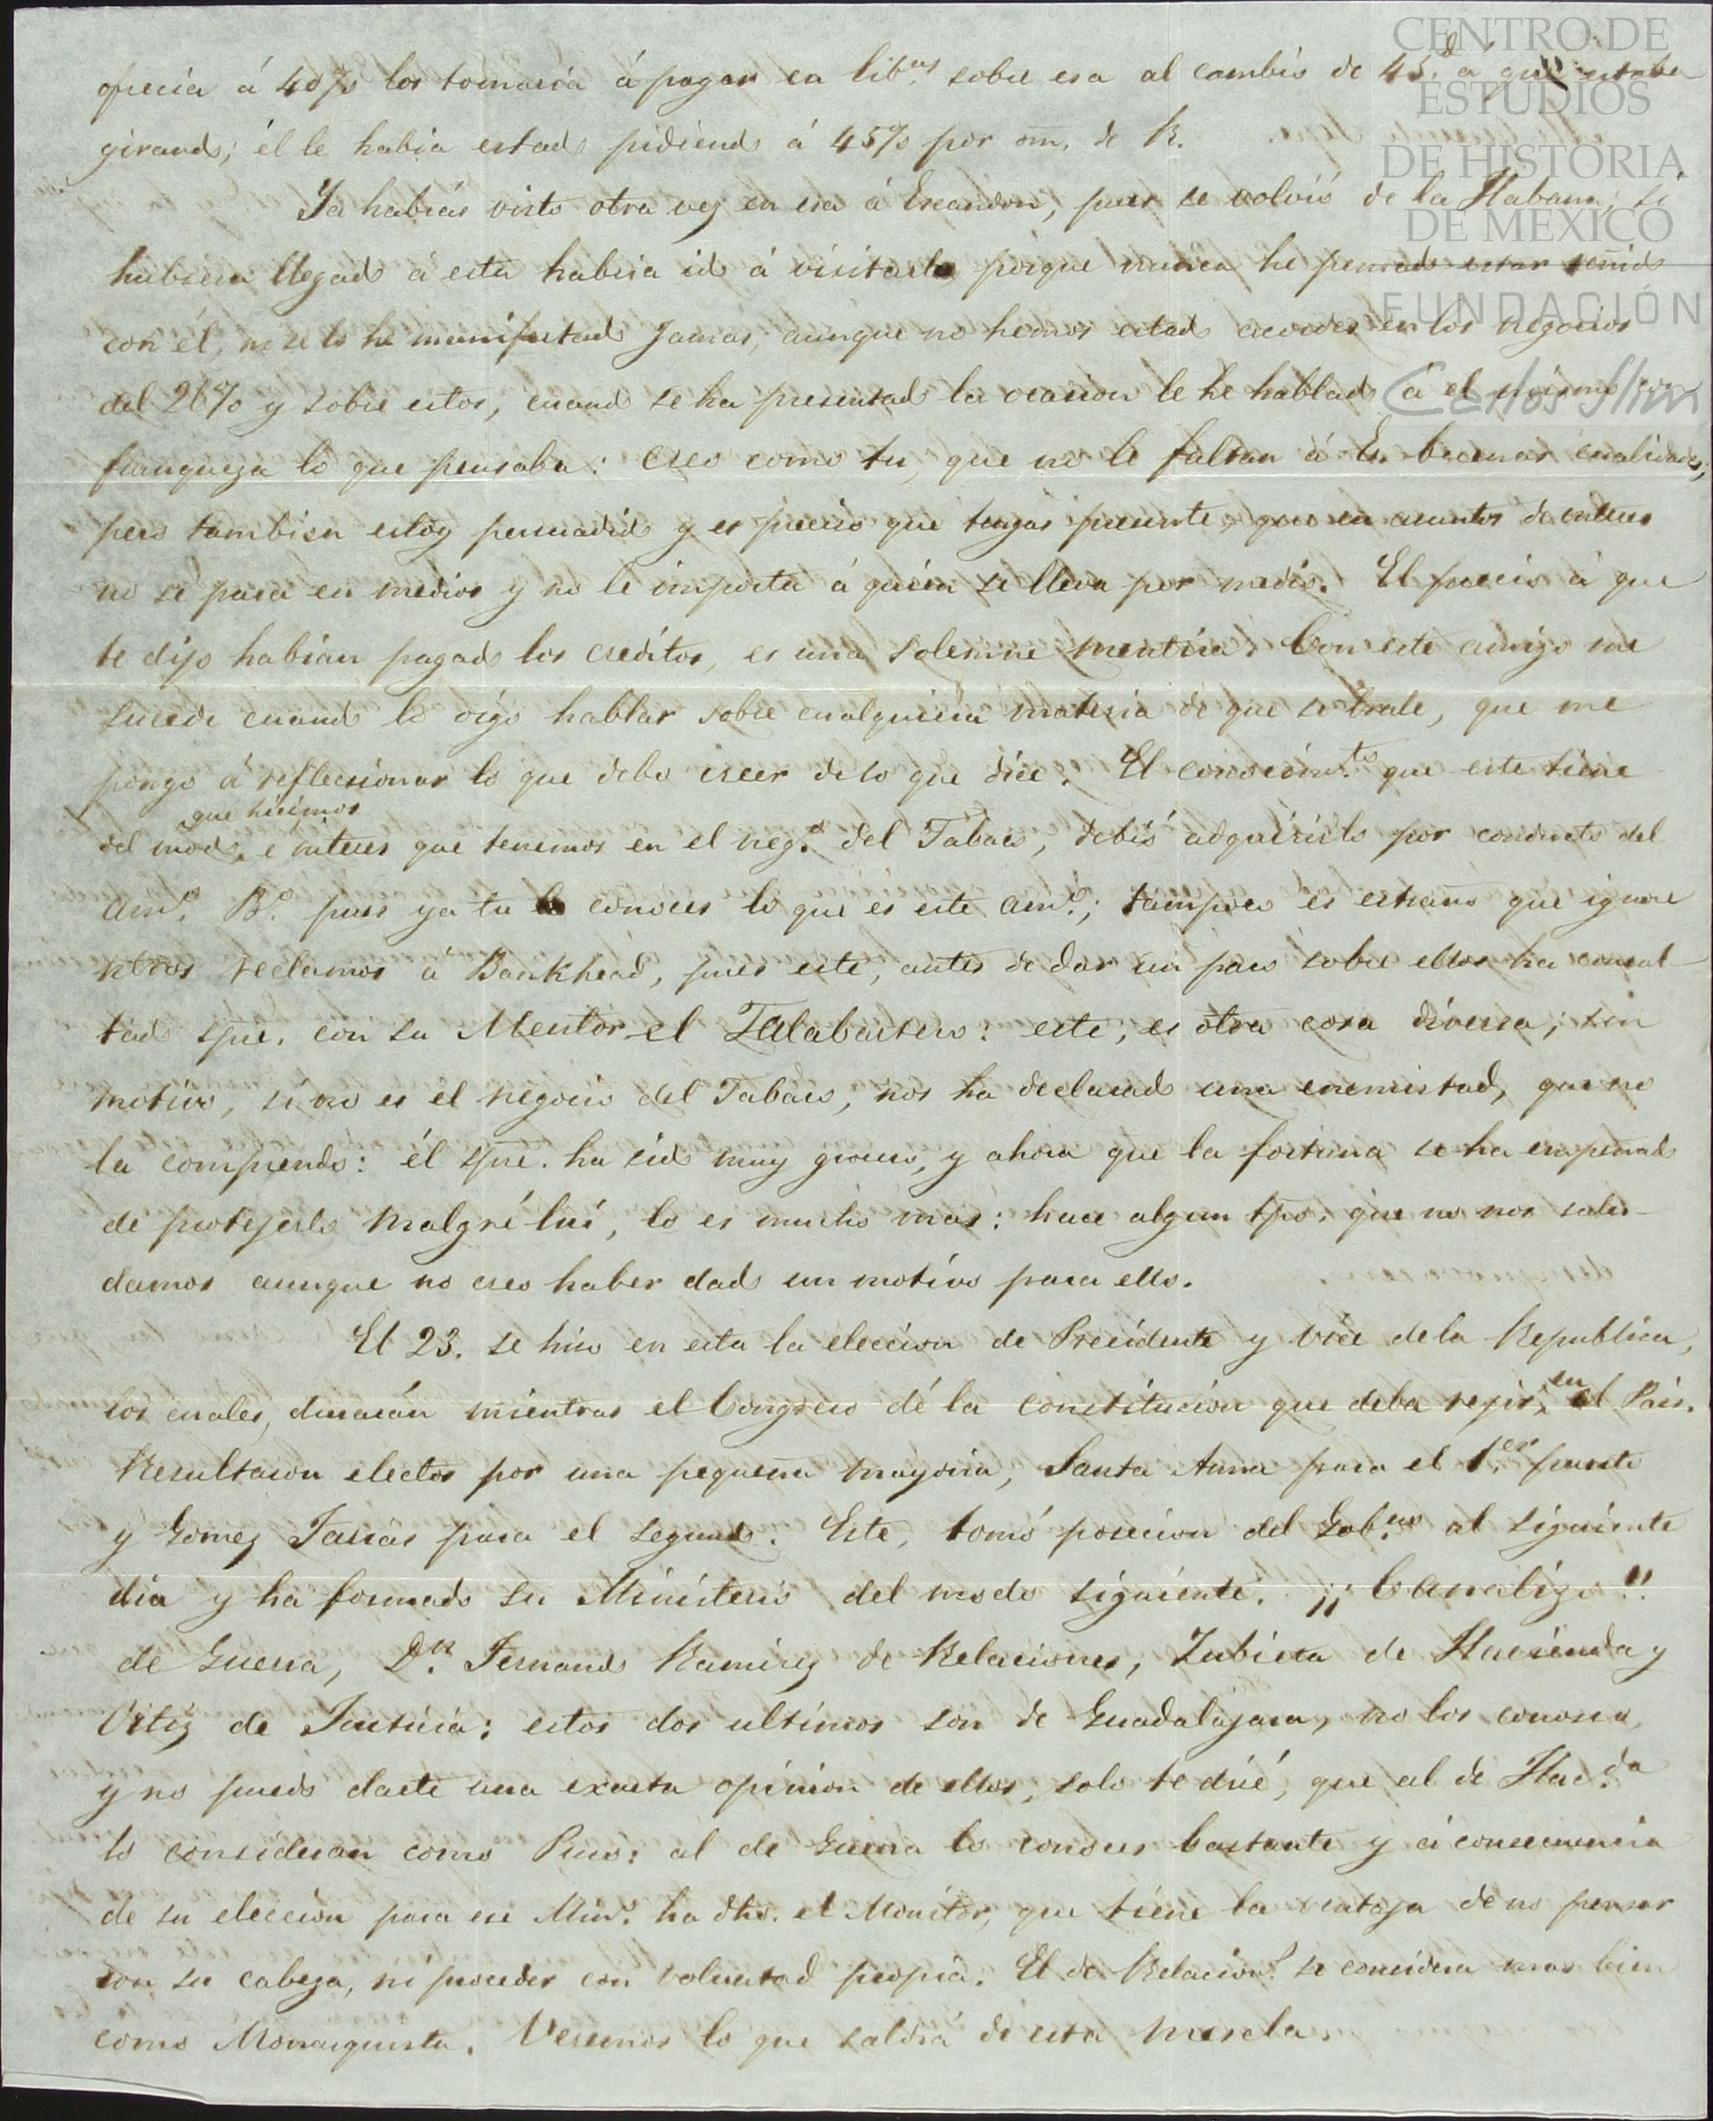 ofrecia á 40% los tomaria á pagar en lib.ⁿˢ sobre esa al cambio de 45.ᵈ á que estaba
girando; él le habia estado pidiendo á 45% por om. de R.
Ya habrás visto otra vez en esa á Escandon, pues se volvió de la Habana; si
hubiera llegado á esta habria ido á visitarlo porque nunca he pensado estar reñido
con él, ni se lo he manifestado jamas, aunque no hemos estado acordes en los negocios
del 26% y sobre estos, cuando se ha presentado la ocasion le he hablado á el mismo con
franqueza lo que pensaba: creo como tu, que no le faltan á E. buenas cualidades;
pero tambien estoy persuadido y es preciso que tengas presente, que en asuntos de interes
no se para en medios y no le importa á quien se lleva por medio. El precio á que
te dijo habian pagado los creditos, es una solemne mentira. Con este amigo me
sucede cuando lo oigo hablar sobre cualquiera materia de que se trate, que me
pongo á reflecsionar lo que debo creer de lo que dice. El conocim.ᵗᵒ que este tiene
del modo que hicimos é interes que tenemos en el neg.º del Tabaco, debió adquirirlo por conducto del
am.º B.º pues ya tu conoces lo que es este am.º; tampoco es estraño que ignore
ntros reclamos á Bankhead, pues este, antes de dar un paso sobre ellos ha consul-
tado spre. con su Mentor el Talabartero: este, es otra cosa diversa; sin
motivo, si no es el negocio del Tabaco, nos ha declarado una enemistad, que no
la comprendo: él spre. ha sido muy grosero, y ahora que la fortuna se ha empeñado
de protejerlo malgré lui, lo es mucho mas: hace algun tpo. que no nos salu-
damos aunque no creo haber dado un motivo para ello.
El 23. se hizo en esta la eleccion de Presidente y Vice de la Republica,
los cuales, durarán mientras el Congreso dé la constitucion que deba rejir en el Pais.
Resultaron electos por una pequeña mayoria, Santa Anna para el 1.ᵉʳ puesto
y Gomez Farias para el segundo. Este, tomó posecion del Gob.ⁿᵒ al siguiente
dia y ha formado su Ministerio del modo siguiente. ¡¡Canalizo!!
de Guerra, D.ⁿ Fernando Ramirez de Relaciones, Zubieta de Hacienda y
Ortiz de Justicia: estos dos ultimos son de Guadalajara, no los conosco,
y no puedo darte una exacta opinion de ellos; solo te diré, que al de Hac.ᵈᵃ
lo consideran como Puro: al de Guerra lo conoces bastante y á consecuencia
de su eleccion para ese Min.º ha dho. el Monitor, que tiene la ventaja de no pensar
con su cabeza, ni proceder con voluntad propia. El de Relacion.ˢ se considera mas bien
como Monarquista. Veremos lo que saldrá de esta mescla.
CENTRO DE
ESTUDIOS
DE HISTORIA
DE MEXICO
FUNDACIÓN
Carlos Slim